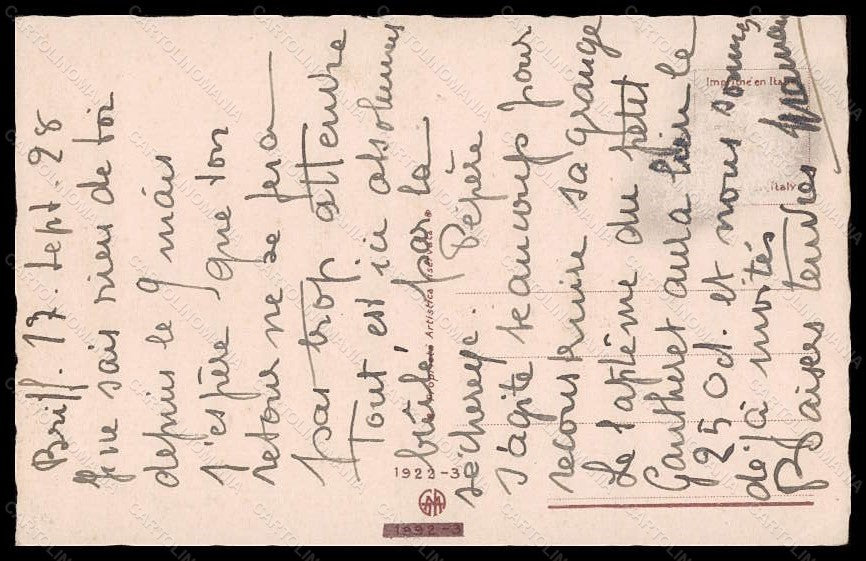 Briff. 17. Sept. 28
Je ne sais rien de toi
depuis le 9 mais
j'espère que ton
retour ne se fera
pas trop attendre
Tout est ici absolument
brûlé par la
sécheresse. Pépère
s'agite beaucoup pour
reconstruire sa grange
Le baptême du petit
Gautheret aura lieu le
25 Oct. et nous sommes
déjà invités
Baisers tendres Maman
Imprimé en Italie
Italy
Proprietà Artistica riservata
1922-3
1992-3
CARTOLINOMANIA